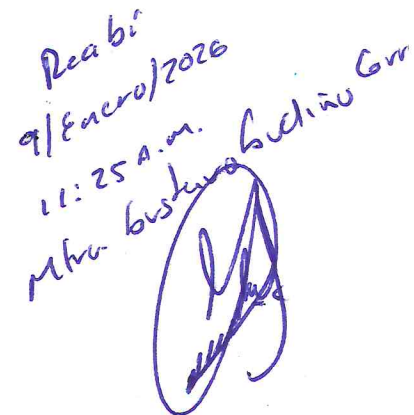 Recibí
9/Enero/2026
11:25 A.m.
Mtro. Gustavo Gudiño